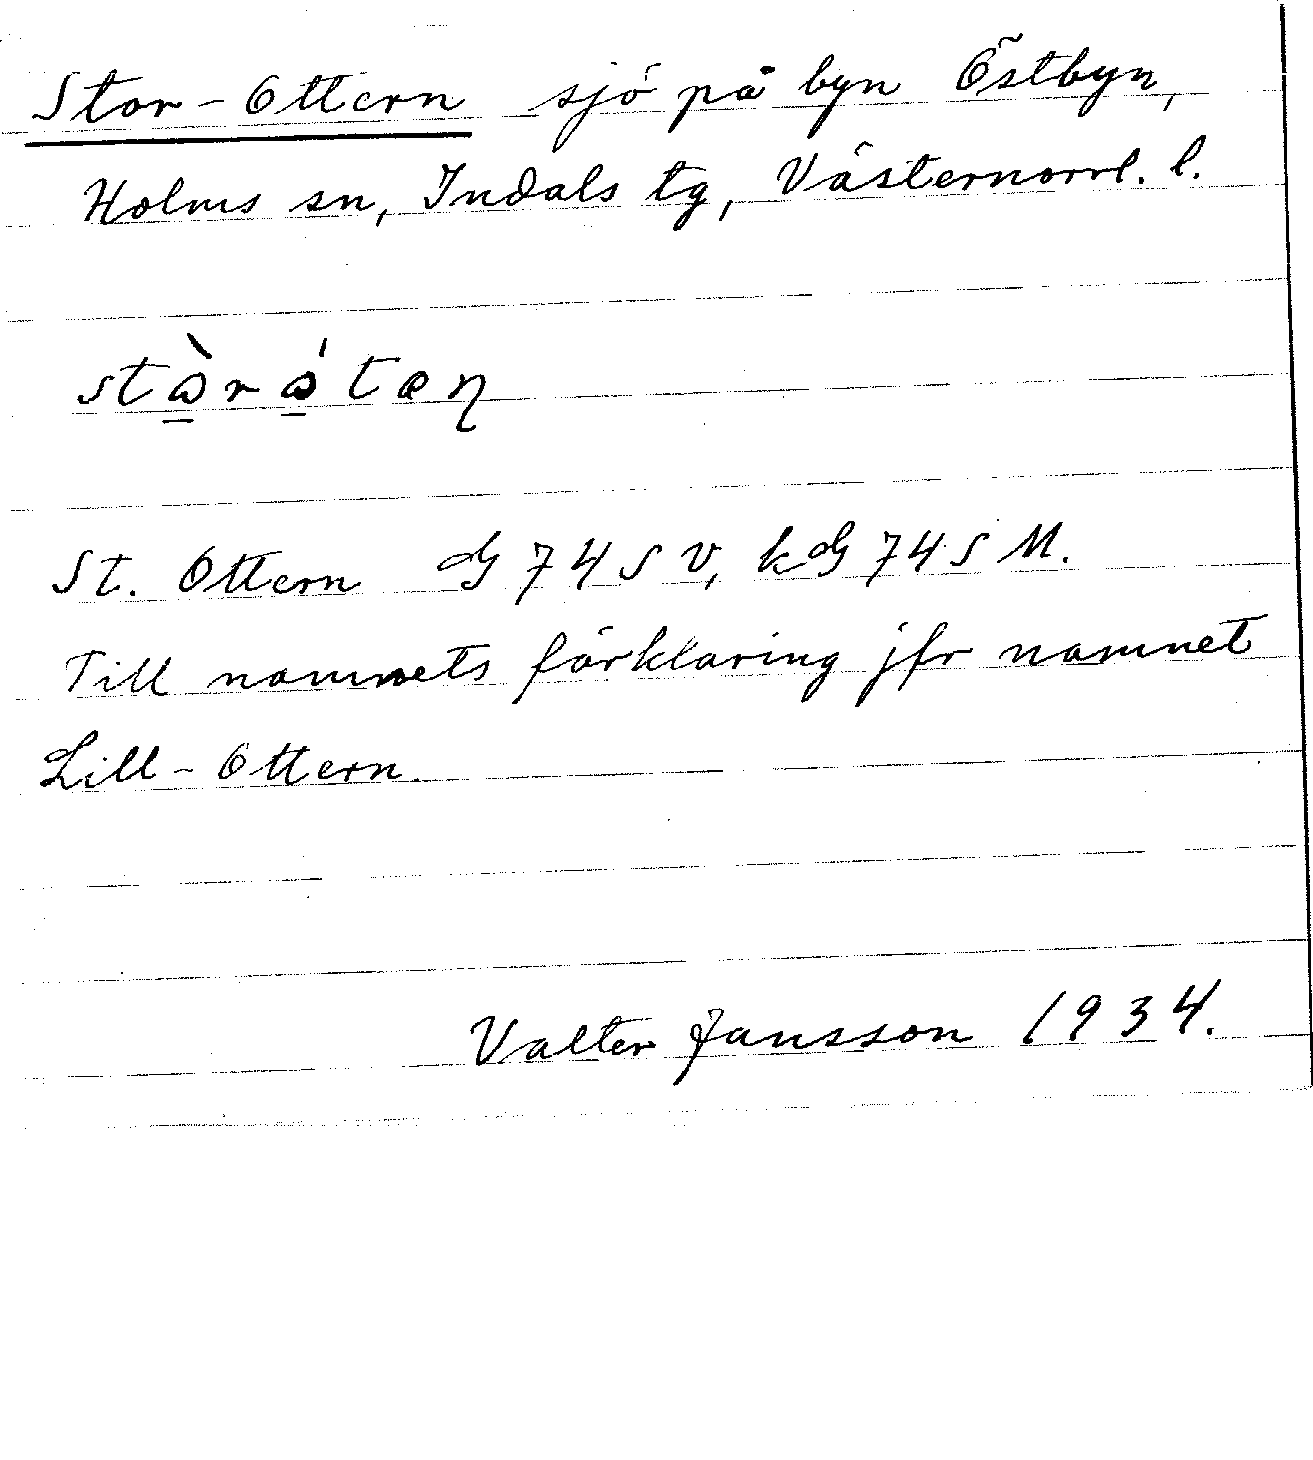 Stor-Ottern sjö på byn Östbyn,
Holms sn, Indals tg, Västernorrl. l.
stòrótæn
St. Ottern G 74 S V, kG 74 S M.
Till namnets förklaring jfr namnet
Lill-Ottern.
Valter Jansson 1934.